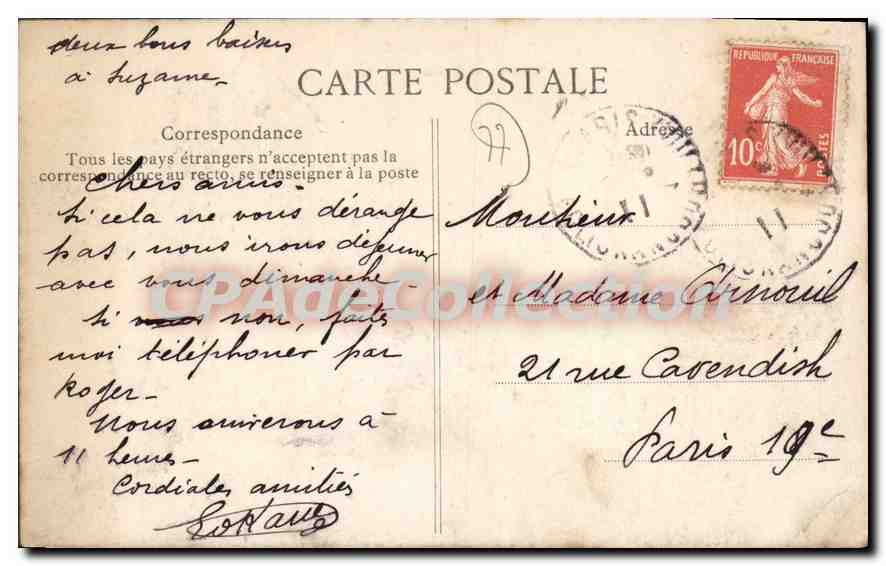 deux bons baisers
à Suzanne_
CARTE POSTALE
Correspondance
Tous les pays étrangers n'acceptent pas la
correspondance au recto, se renseigner à la poste
Chers amis_
Si cela ne vous dérange
pas, nous irons déjeuner
avec vous dimanche_
Si non, faites
moi téléphoner par
Roger_
Nous arriverons à
11 heures_
Cordiales amitiés
77
Adresse
REPUBLIQUE FRANÇAISE
10c
POSTES
Monsieur
et Madame Arnouil
21 rue Cavendish
Paris 19e
CPAdeCollection